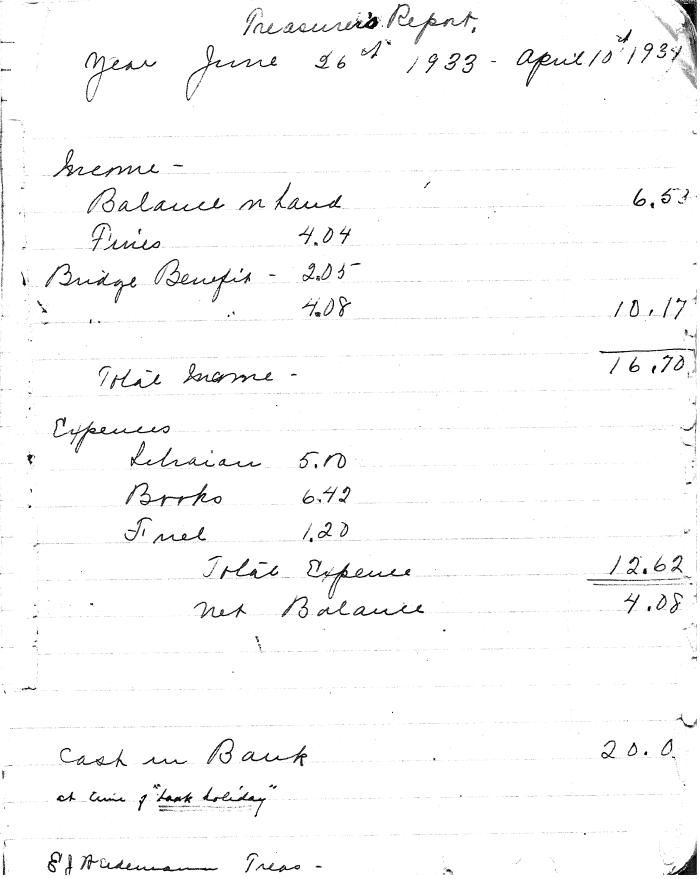 Treasurer's Report.
Year June 26th 1933 - April 10th 1934
Income -
Balance on hand 6.53
Fines 4.04
Bridge Benefit - 2.05
" " 4.08 10.17
Total Income - 16.70
Expences
Libraian 5.00
Books 6.42
Fuel 1.20
Total Expence 12.62
Net Balance 4.08
Cash in Bank 20.0
at time of "bank holiday"
Treas -